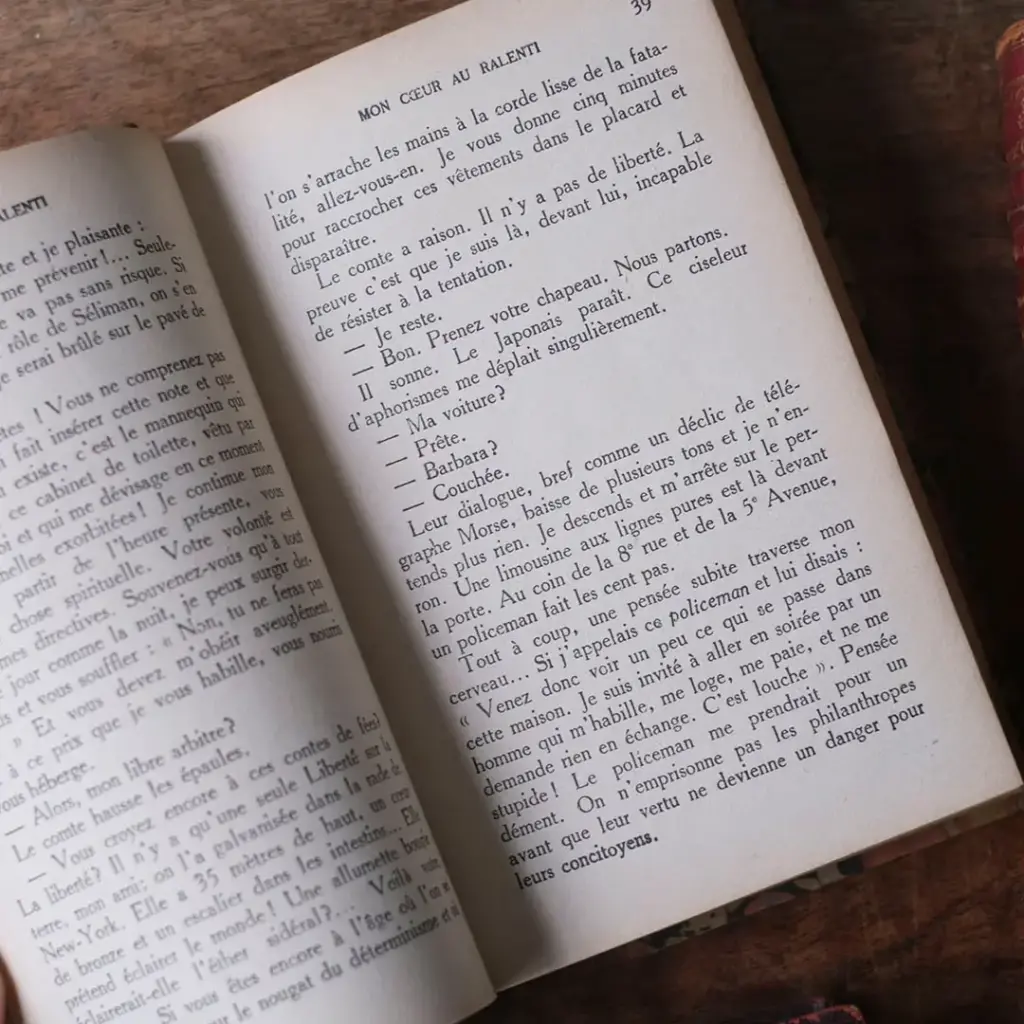 ALENTI
te et je plaisante :
me prévenir !... Seule-
e va pas sans risque. Si
rôle de Séliman, on s'en
e serai brûlé sur le pavé de
tes ! Vous ne comprenez pas
fait insérer cette note et que
existe, c'est le mannequin qui
ce cabinet de toilette, vêtu par
oi et qui me dévisage en ce moment
nelles exorbitées ! Je continue mon
partir de l'heure présente, vous
chose spirituelle. Votre volonté est
mes directives. Souvenez-vous qu'à tout
jour comme la nuit, je peux surgir der-
is et vous souffler : « Non, tu ne feras pas
» Et vous devez m'obéir aveuglément.
à ce prix que je vous habille, vous nourris
vous héberge.
— Alors, mon libre arbitre ?
Le comte hausse les épaules.
— Vous croyez encore à ces contes de fées ?
La liberté ? Il n'y a qu'une seule Liberté sur la
terre, mon ami ; on l'a galvanisée dans la rade de
New-York. Elle a 35 mètres de haut, un cœur
de bronze et un escalier dans les intestins... Elle
prétend éclairer le monde ! Une allumette bougie
éclairerait-elle l'éther sidéral ?... Voilà votre
Si vous êtes encore à l'âge où l'on
le nougat du déterminisme et
39
MON CŒUR AU RALENTI
l'on s'arrache les mains à la corde lisse de la fata-
lité, allez-vous-en. Je vous donne cinq minutes
pour raccrocher ces vêtements dans le placard et
disparaître.
Le comte a raison. Il n'y a pas de liberté. La
preuve c'est que je suis là, devant lui, incapable
de résister à la tentation.
— Je reste.
— Bon. Prenez votre chapeau. Nous partons.
Il sonne. Le Japonais paraît. Ce ciseleur
d'aphorismes me déplait singulièrement.
— Ma voiture ?
— Prête.
— Barbara ?
— Couchée.
Leur dialogue, bref comme un déclic de télé-
graphe Morse, baisse de plusieurs tons et je n'en-
tends plus rien. Je descends et m'arrête sur le per-
ron. Une limousine aux lignes pures est là devant
la porte. Au coin de la 8e rue et de la 5e Avenue,
un policeman fait les cent pas.
Tout à coup, une pensée subite traverse mon
cerveau... Si j'appelais ce policeman et lui disais :
« Venez donc voir un peu ce qui se passe dans
cette maison. Je suis invité à aller en soirée par un
homme qui m'habille, me loge, me paie, et ne me
demande rien en échange. C'est louche ». Pensée
stupide ! Le policeman me prendrait pour un
dément. On n'emprisonne pas les philanthropes
avant que leur vertu ne devienne un danger pour
leurs concitoyens.